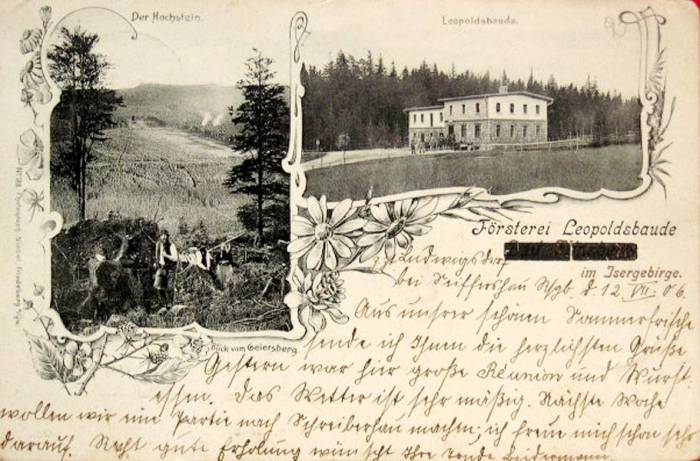 Der Hochstein.
Leopoldsbaude.
Försterei Leopoldsbaude
im Isergebirge.
Blick vom Geiersberg.
Ludwigsdorf
bei Seiffershau d. 12. VII. 06.
Aus unsrer schönen Sommerfrische
sende ich Ihnen die herzlichsten Grüße
Gestern war hier große Réunion und Wurst-
essen. Das Wetter ist sehr mäßig. Nächste Woche
wollen wir eine Partie nach Schreiberhau machen; ich freue mich schon sehr
darauf. Recht gute Erholung wünscht Ihre